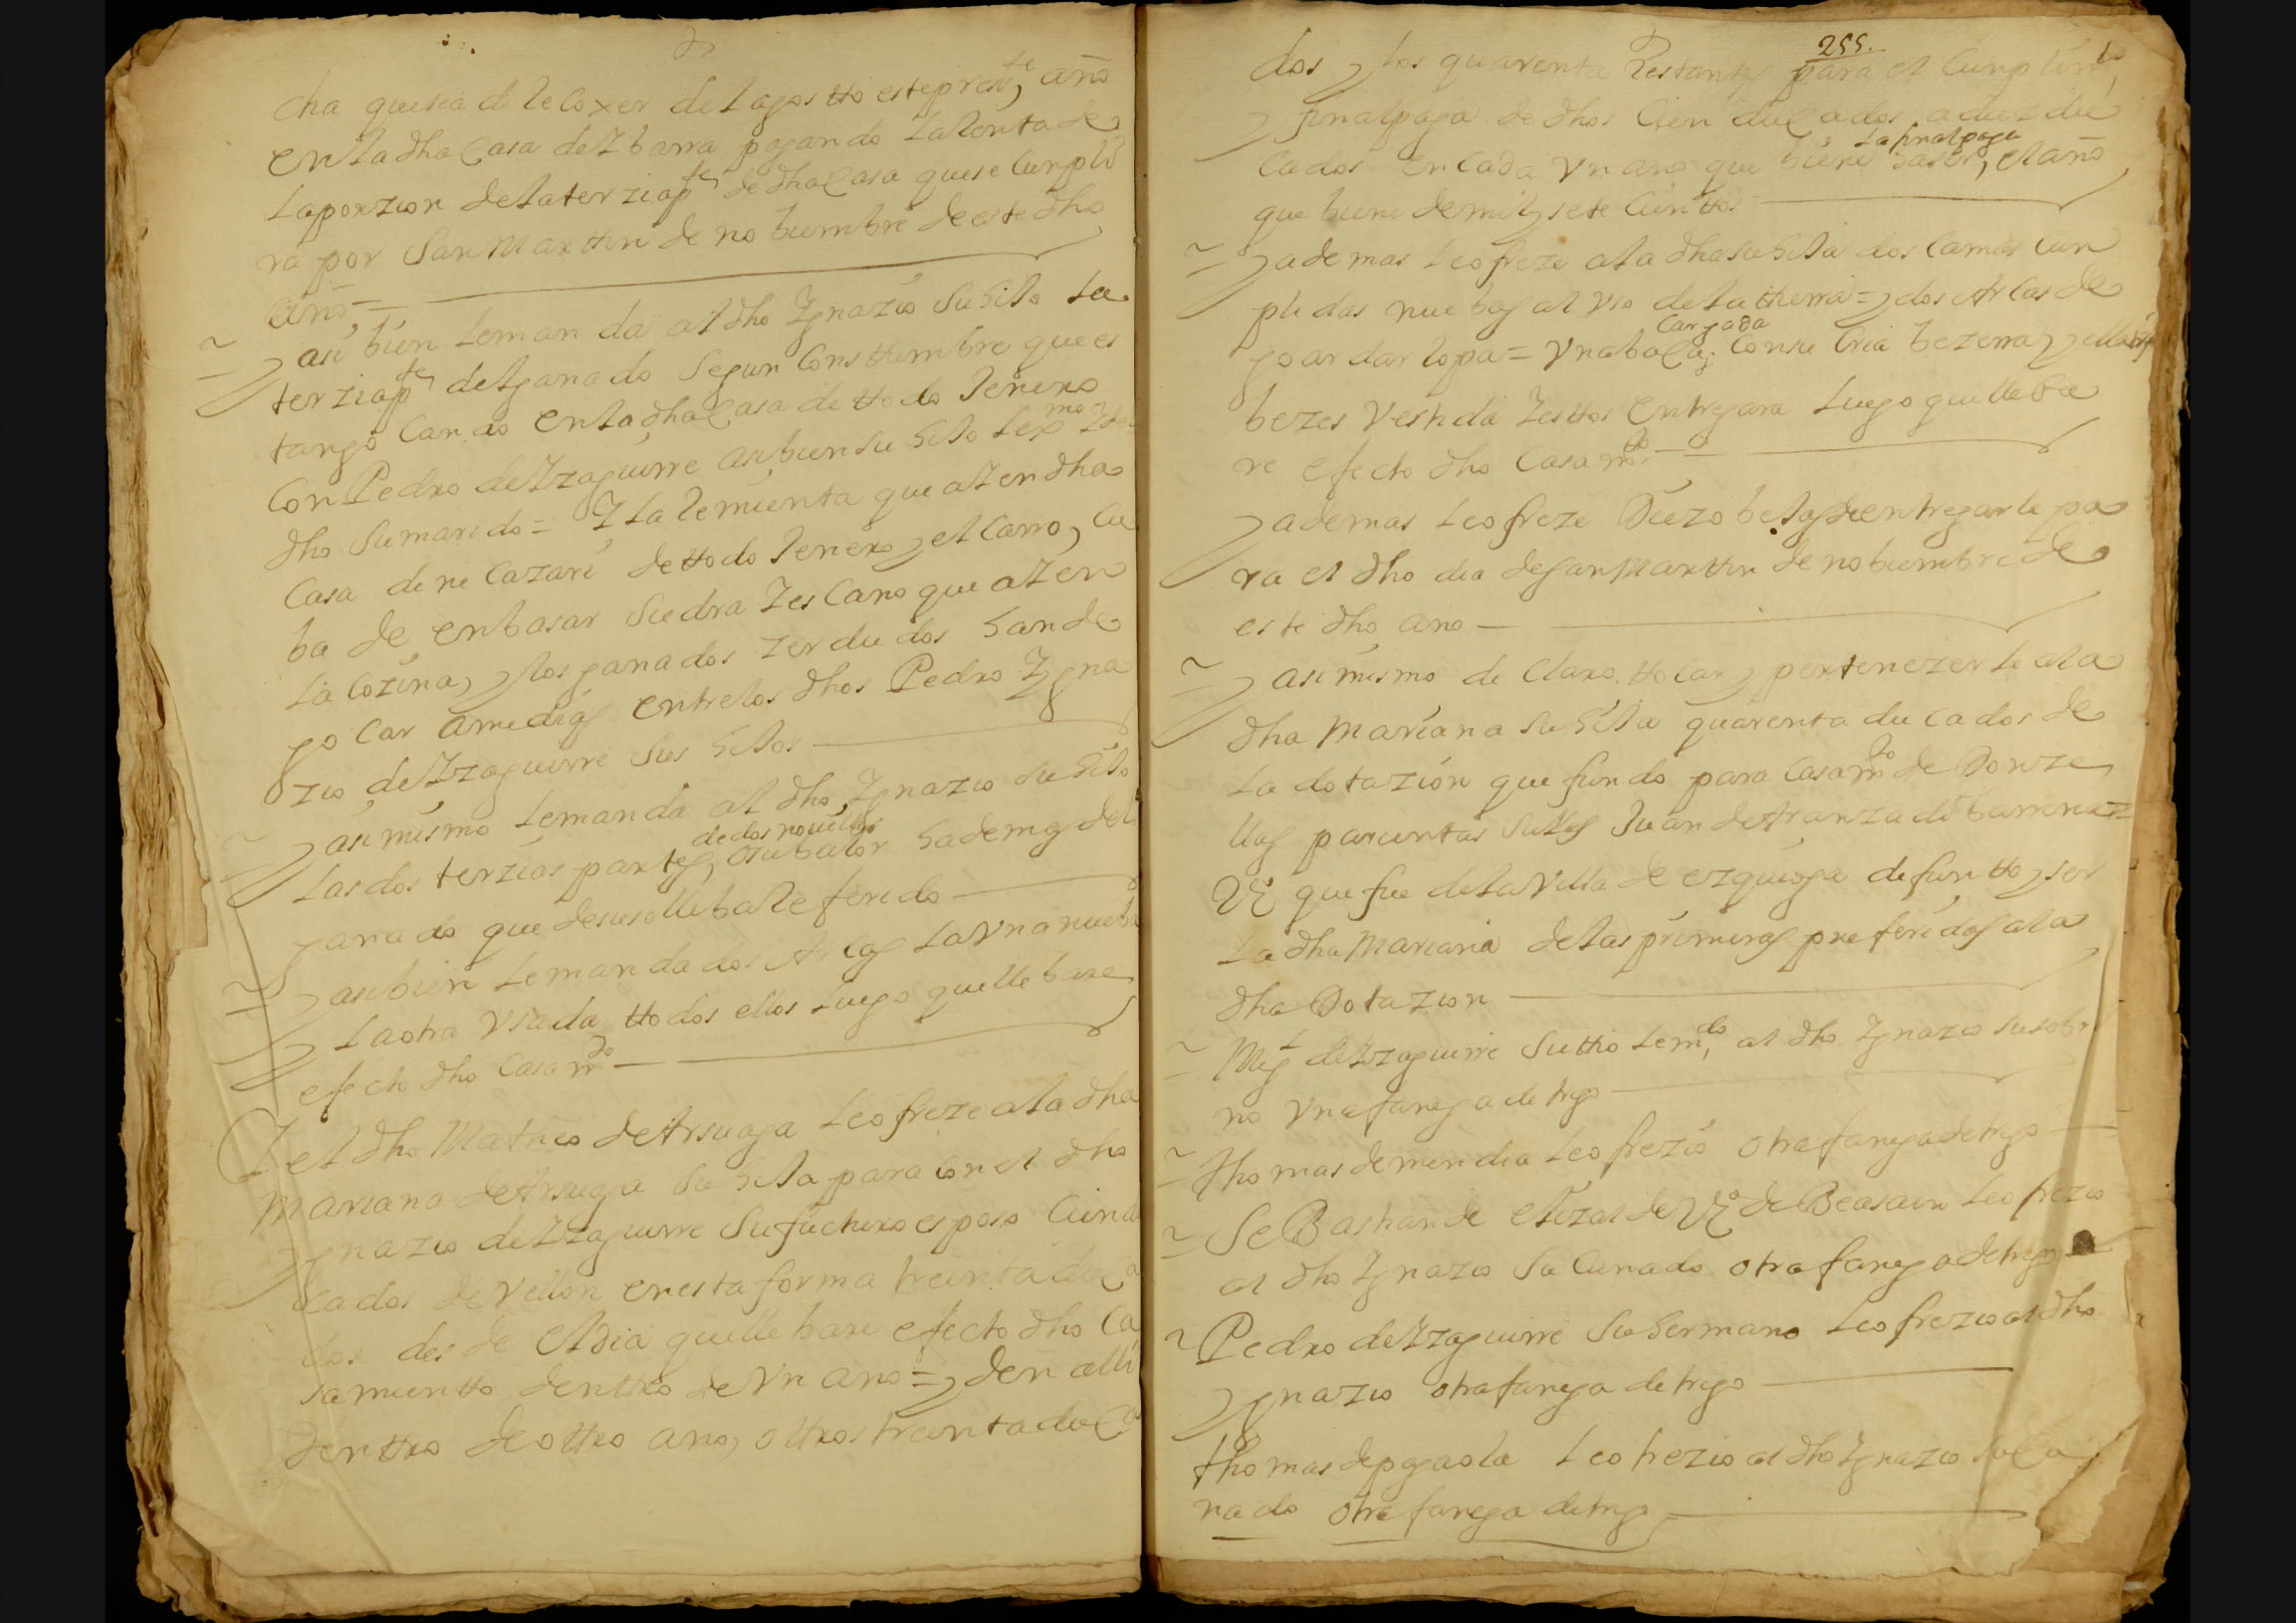 cha que sea de recoxer del agostto este preste, año
en la dha Casa de Ybarra pagando la renta de
la porzion de la terzia pte de dha Casa que se Cumpli
ra por San Marttin de nobiembre de este dho
año =
y asi bien le manda al dho Ygnazio su hijo la
terzia pte del ganado segun Consttumbre que es
tango Cando en la dha Casa de ttodo Jenero
Con Pedro de Yzaguirre asi bien su hijo
dho su marido = Y la remienta que al en dha
Casa de ne Cazari de ttodo Jenero, y el Carro, Cu
ba de enbasar Siedra Y esCano que al en
la Cozina, y los ganados zerdudos han de
go Car a medias entre los dhos Pedro Ygna
zio de Yzaguirre sus hijos
y asi mismo le manda al dho Ygnazio su hijo
de dos nobillos
las dos terzias partes, o su balor ademas del
ganado que de suso lleba referido
y asi bien le manda dos Arcas la Vna nueba
y la otra Vsada ttodos ellos luego que llebare
efecto dho Casamto
Y el dho Matheo de Arsuaga le ofreze a la dha
Mariana de Arsuaga su hija para con el dho
Ygnazio de Yzaguirre su futturo esposo Cien du
cados de Vellon en esta forma treinta duca
dos desde el dia que llebare efecto dho Ca
samientto denttro de Vn año = y den alli
denttro de ottro año, ottros treinta duca
255.
dos y los quarenta restantes para el Cunplimto
y final paga de dhos Cien ducados a diez du
la final paga
cados en cada Vn año que biene haser, el año
que biene de mil y sete Cienttos
y ademas le ofreze a la dha su hija dos Camas Cun
plidas nuebas al Vso de la ttierra = y dos Arcas de
Cargada
goardar ropa = Vna baca, Con su Cria bezerra y ella
bezes Vestida Y esttos entregara luego que lleba
re efecto dho Casamto
y ademas le ofreze Diez obejas de entregarle pa
ra el dho dia de San Marttin de nobiembre de
este dho año
y asi mismo de Claro ttocar y pertenezerle a la
dha Mariana su hija quarenta ducados de
la dotazion que fundo para Casamto de Donze
llas parientas suyas Juan de Aranzadi barrena
Vº que fue de la Villa de ezquioga difuntto, y ser
la dha Mariana de las primeras preferidas a la
dha Dotazion
Migl de Yzaguirre su ttio le mdo, al dho Ygnazio su sobri
no Vna fanega de trigo
Thomas de mendia le ofrezio otra fanega de trigo
SeBastian de elizalde Vº de Beasain le ofrezio
al dho Ygnazio su Cunado otra fanega de trigo
Pedro de Yzaguirre su hermano le ofrezio al dho
Ygnazio otra fanega de trigo
Thomas de pagaola le ofrezio al dho Ygnazio su Cu
nado otra fanega de trigo